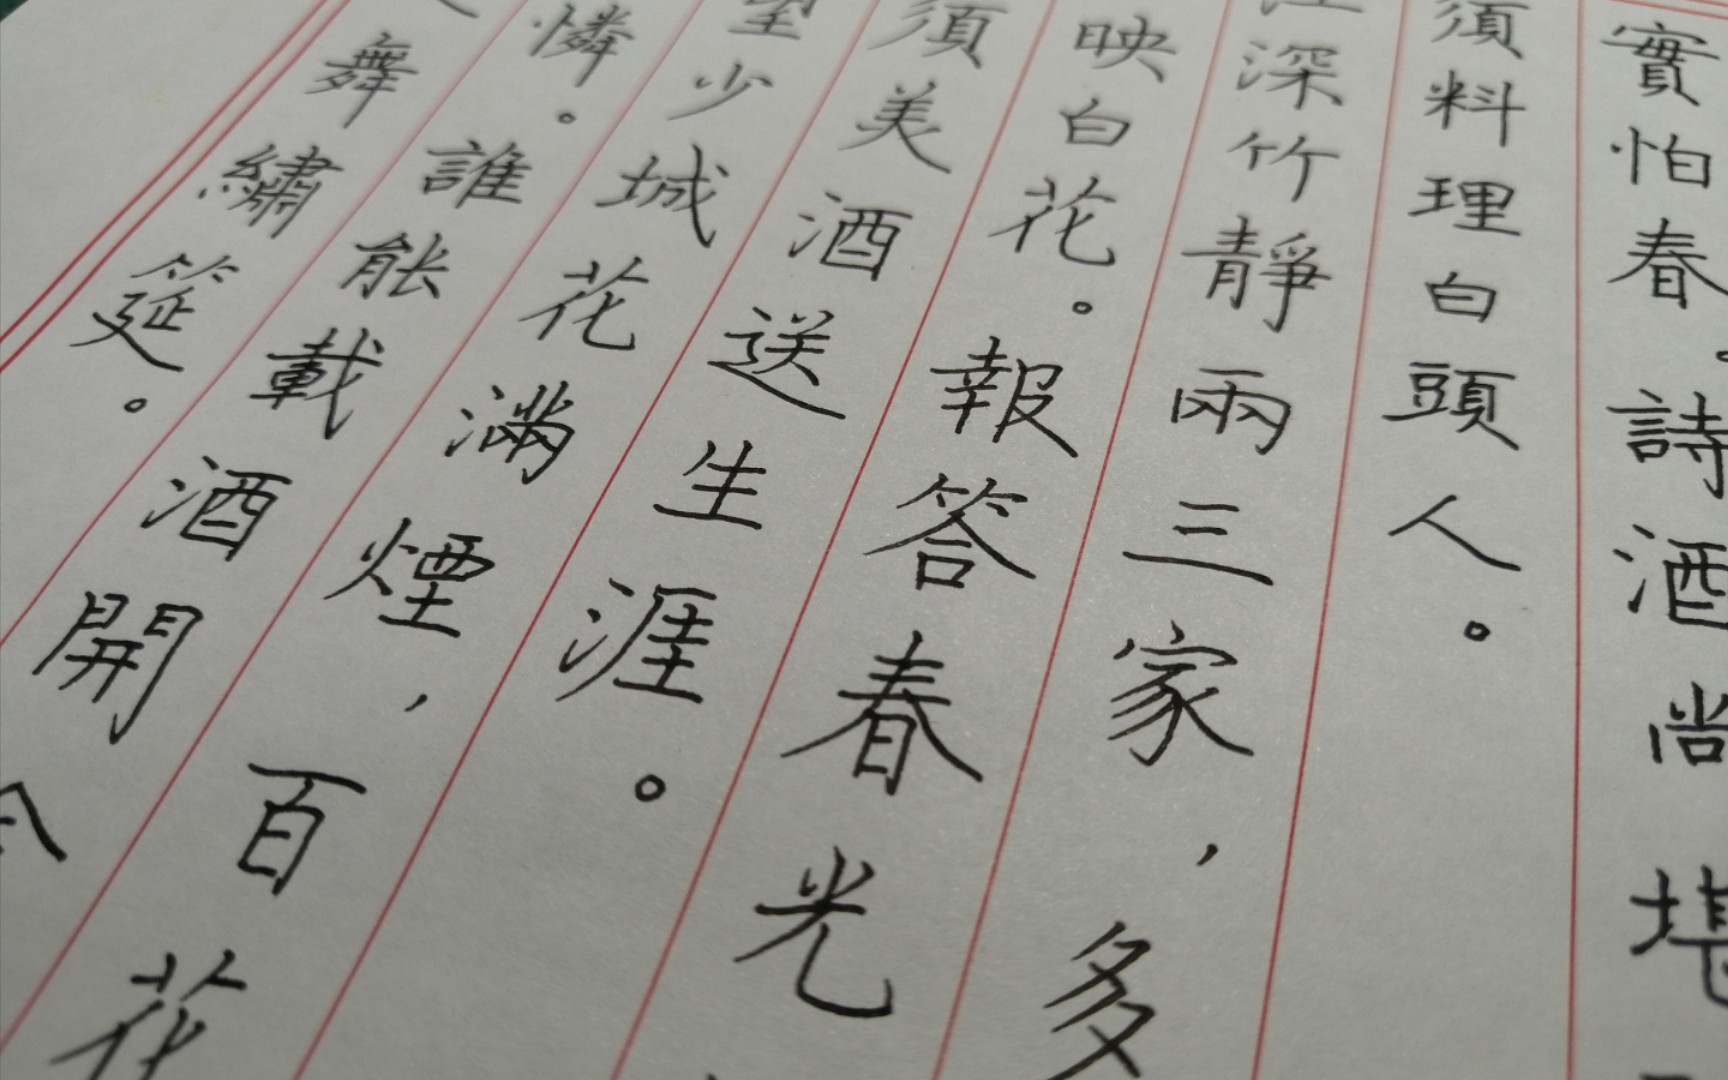 實怕春。詩酒尚堪
須料理白頭人。
江深竹靜兩三家，多
映白花。報答春光
須美酒送生涯。
望少城花滿煙，百花
憐。誰能載酒開
舞繡筵。